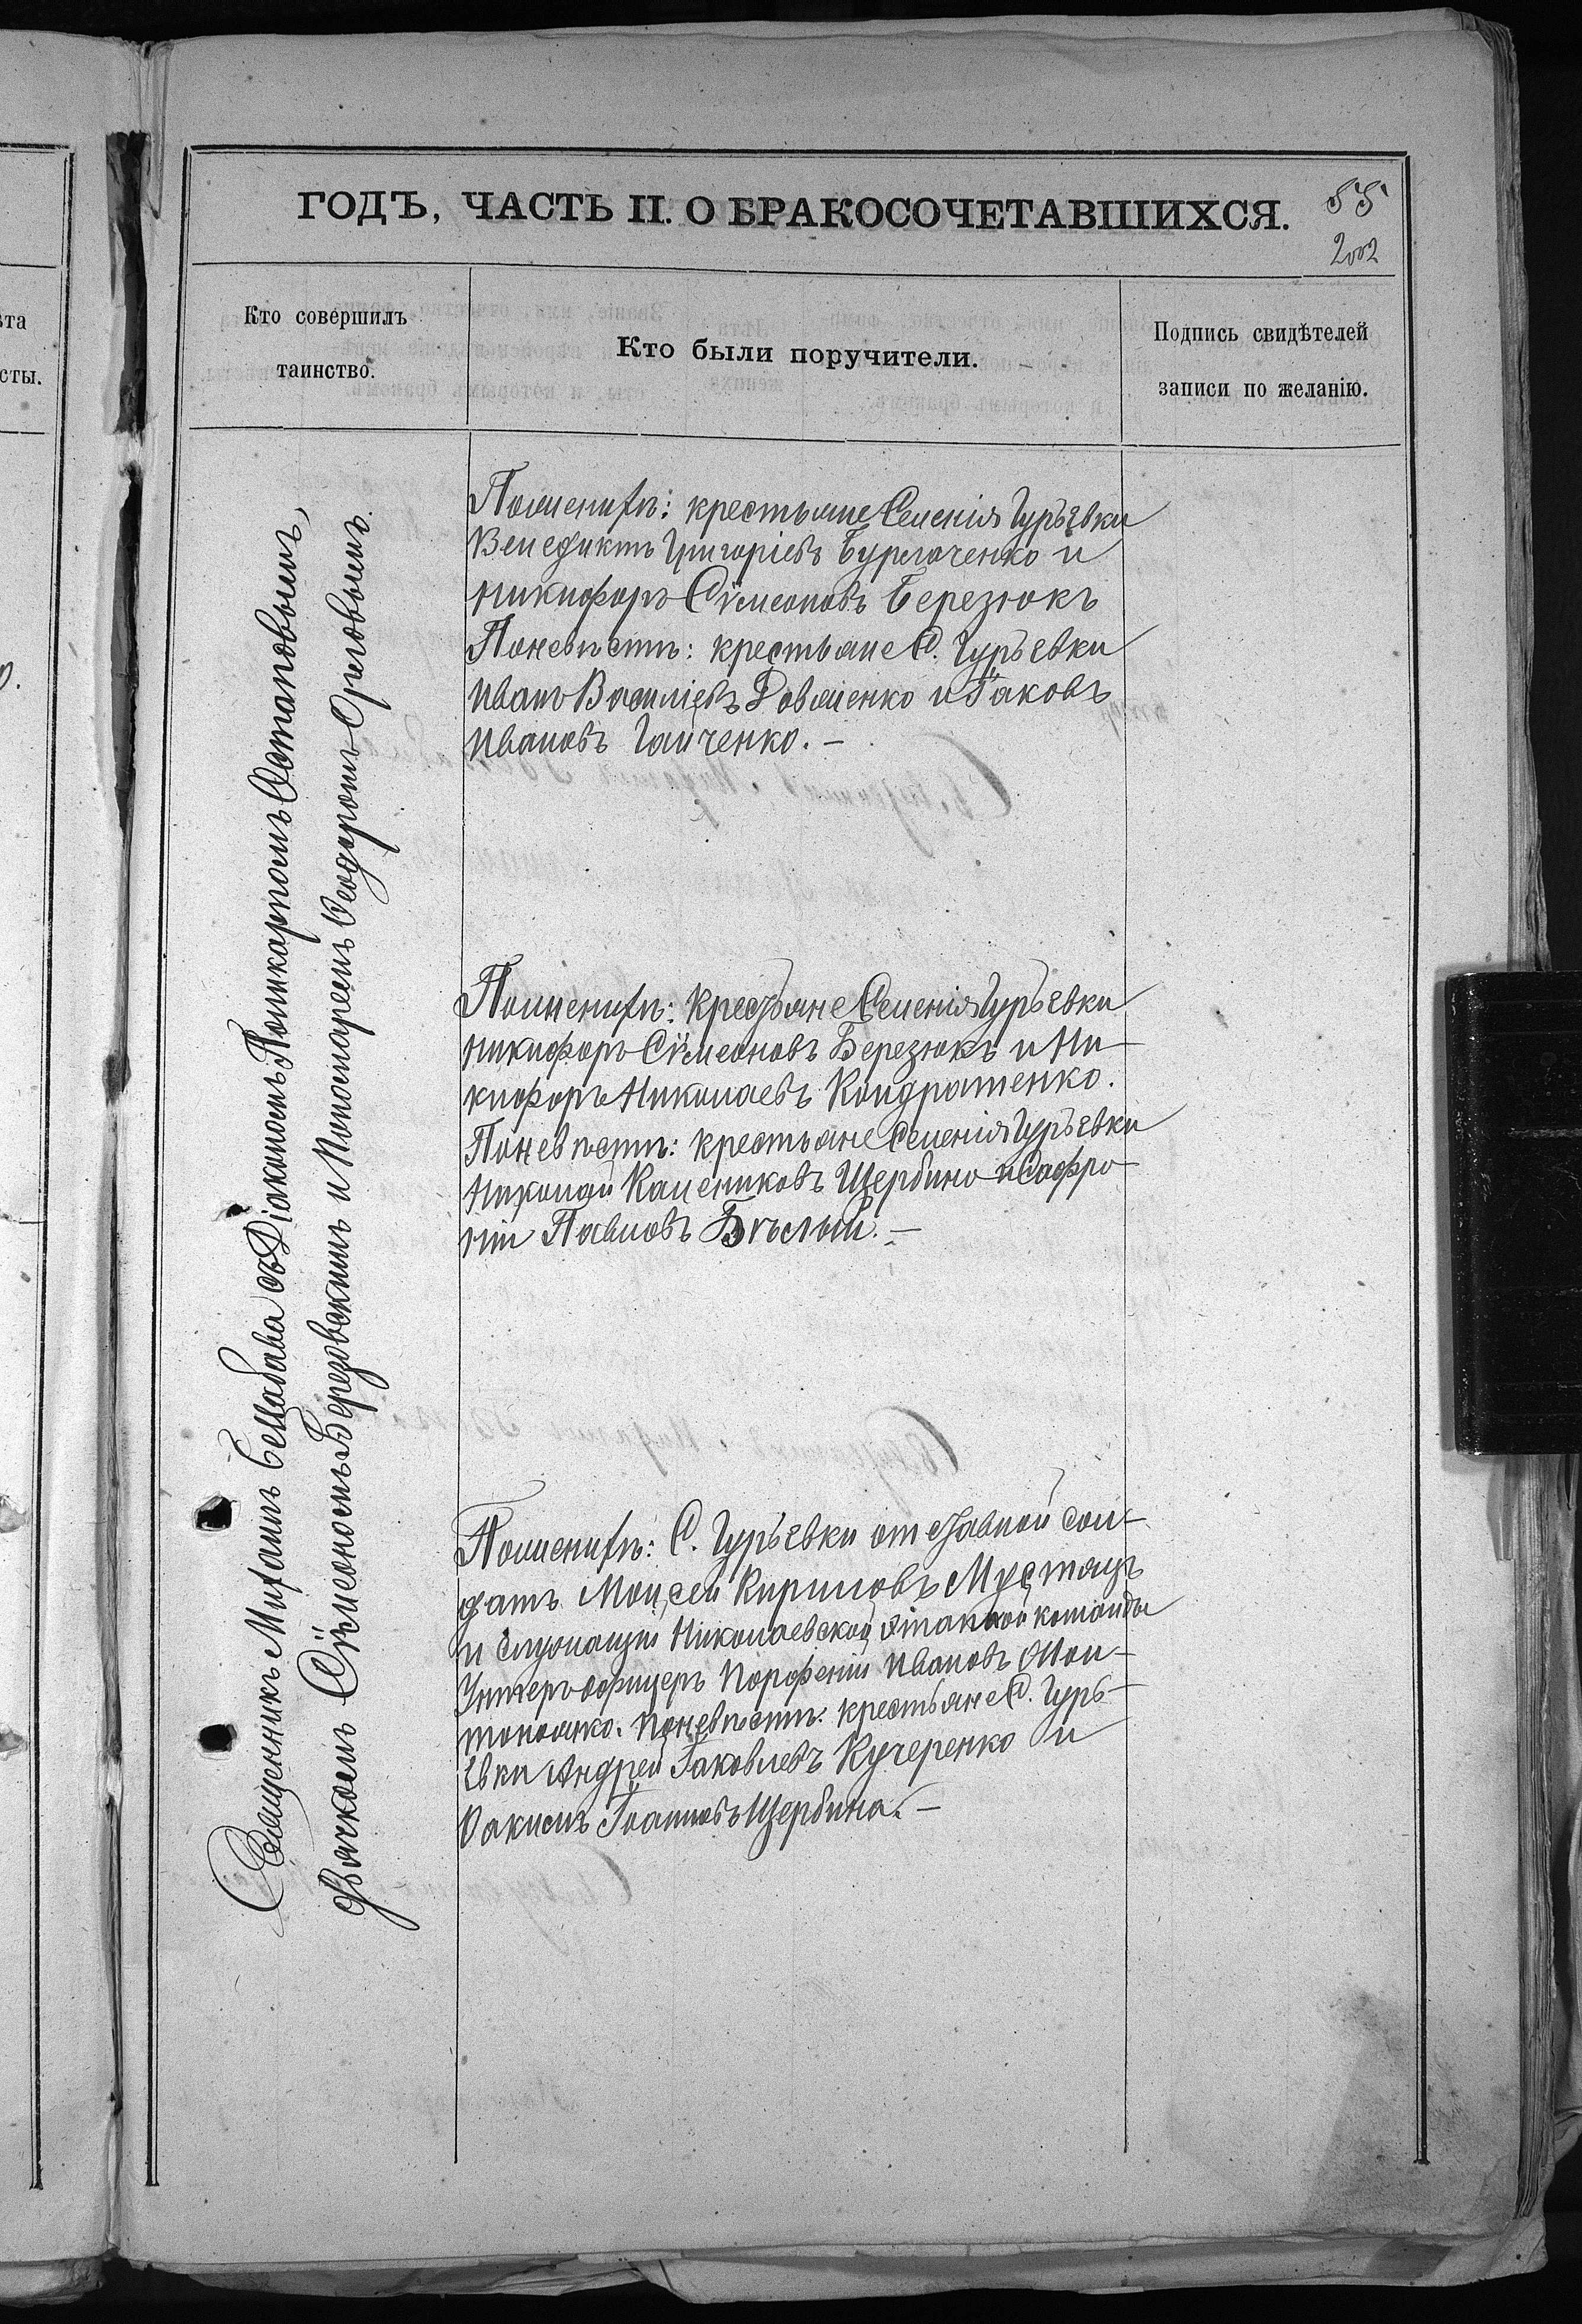 ѣта
сты.
ГОДЪ, ЧАСТЬ II. О БРАКОСОЧЕТАВШИХСЯ.
55
2002
Кто совершилъ
таинство.
Кто были поручители.
Подпись свидѣтелей
записи по желанію.
Священникъ Михаилъ съ Діакономъ Поликарпомъ Остаповымъ,
дьячкомъ Сѷмеономъ Березовскимъ и Пономаремъ Ѳеодоромъ Ореловымъ.
По женихѣ: крестьяне Селенія Гурьевки
Венедиктъ Григоріевъ Бурлаченко и
Никифоръ Сѷмеоновъ Березюкъ
По невѣстѣ: крестьяне С. Гурьевки
Иванъ Василіевъ Довженко и Іаковъ
Ивановъ Гайченко. –
По женихѣ: крестьяне Селенія Гурьевки
Никифоръ Сѷмеоновъ Березюкъ и Ни-
кифоръ Николаевъ Кондратенко.
По невѣстѣ: крестьяне Селенія Гурьевки
Николай Калениковъ Щербина и Софро-
ній Павловъ Бѣлый. –
По женихѣ: С. Гурьевки отставной сол-
датъ Моисей Кириловъ Мустяцъ
и служащій Николаевской этапной команды
Унтеръ офицеръ Порфеній Ивановъ
По невѣстѣ: крестьяне С. Гурь-
евки Андрей Іаковлевъ Кучеренко и
Іоакимъ Іоанновъ Щербина. –